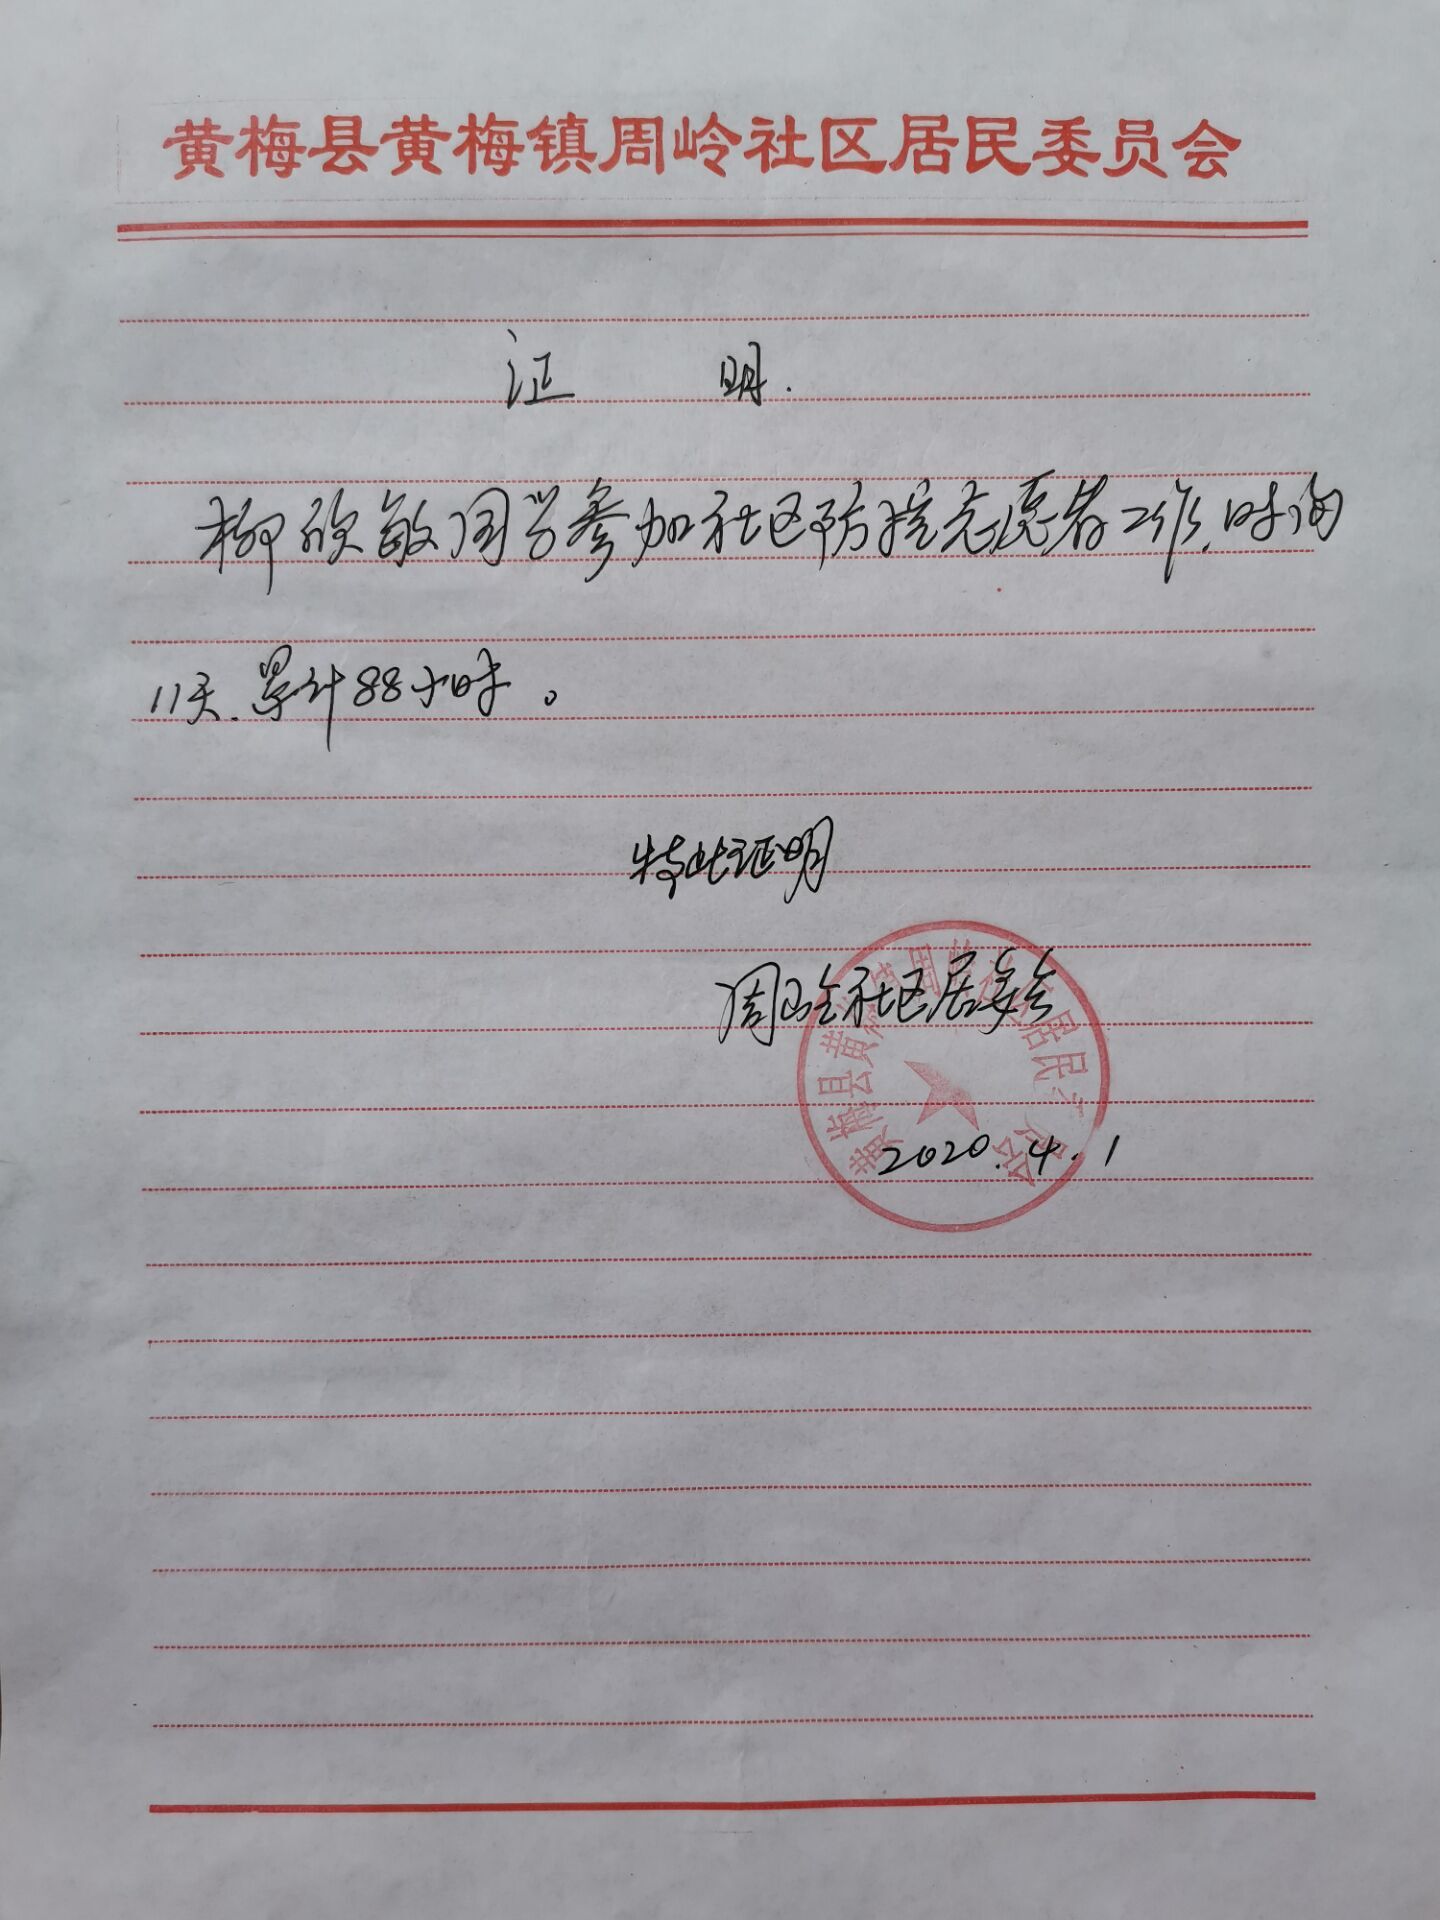 黄梅县黄梅镇周岭社区居民委员会
证 明.
柳欣敏同学参加社区防控志愿者工作,时间
11天.累计88小时。
特此证明
周岭社区居委会
黄梅县黄梅镇周岭社区居民委员会
2020.4.1